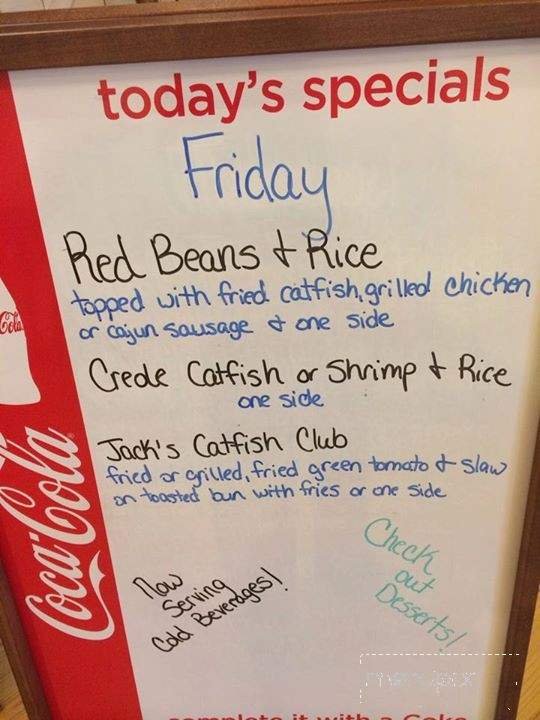 today's specials
Friday
Red Beans + Rice
topped with fried catfish, grilled chicken
or cajun sausage + one side
Creole Catfish or Shrimp + Rice
one side
Jack's Catfish Club
fried or grilled, fried green tomato + slaw
on toasted bun with fries or one side
Now
Serving
Cold Beverages!
Check
out
Desserts!
Cola
Coca-Cola
complete it with a Coke